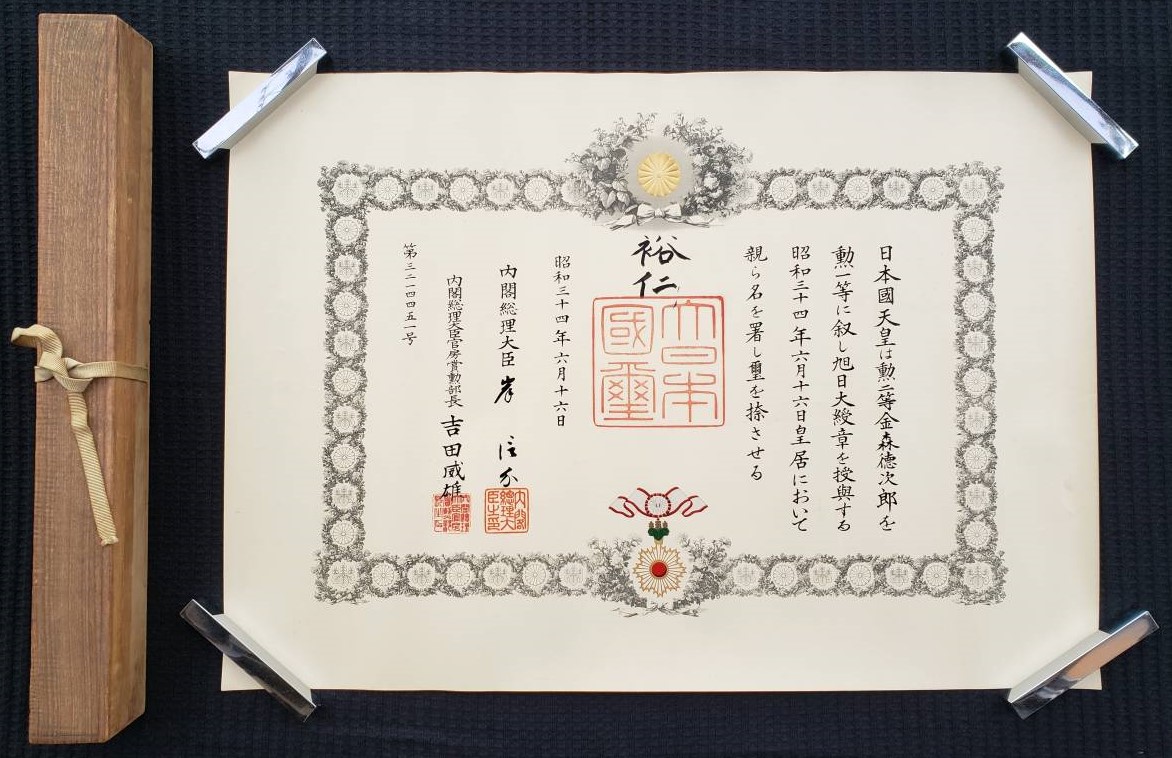 日本國天皇は勲二等金森徳次郎を
勲一等に叙し旭日大綬章を授與する
昭和三十四年六月十六日皇居において
親ら名を署し璽を捺させる
裕仁
大日本國璽
昭和三十四年六月十六日
内閣総理大臣 岸 信介
内閣総理大臣之印
内閣総理大臣官房賞勲部長 吉田威雄
第三二一四四五一号